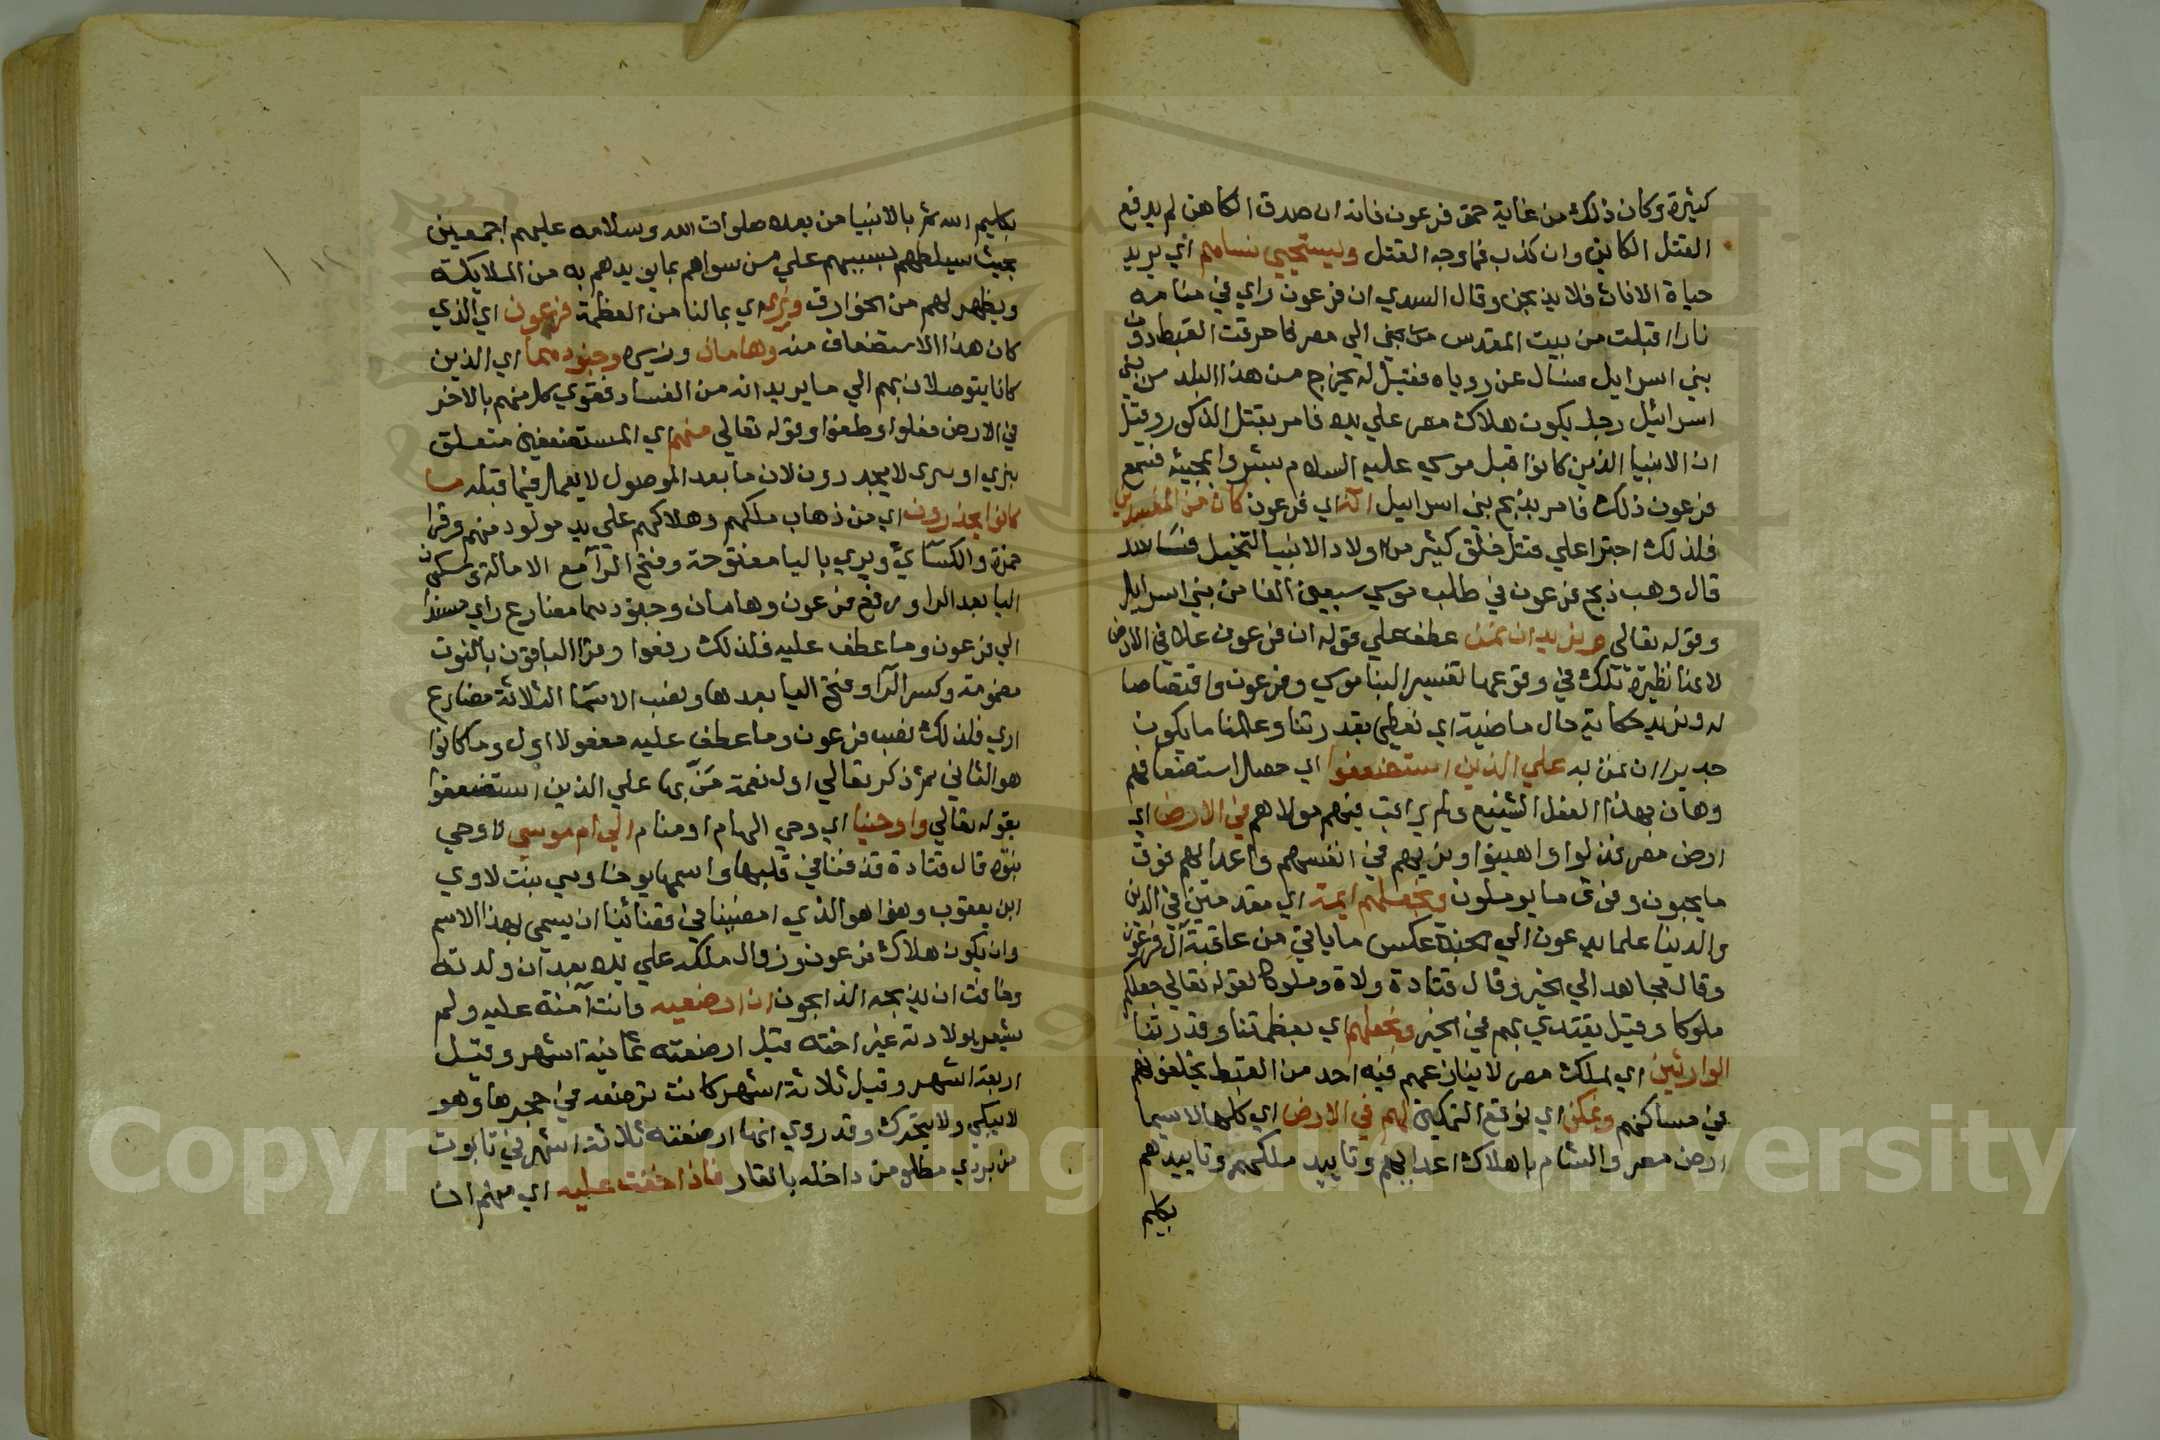 كثيرة وكان ذلك من غاية حمق فرعون فانه ان صدق الكاهن لم يدفع
القتل الكاين وان كذب فما وجه القتل ويستحيي نساهم اي يريد
حياة الاناث فلا يذبحن وقال السدي ان فرعون راي في منامه
نارا اقبلت من بيت المقدس الي مصر فاحرقت القبط دون
بني اسرايل فسال عن روياه فقيل له يخرج من هذا البلد من بني
اسرائيل رجل يكون هلاك مصر علي يده فامر بقتل الذكور وقيل
ان الانبيا الذين كانوا قبل موسي عليه السلام بشروا بمجيئه فسمع
فرعون ذلك فامر بذبح بني اسراييل انه اي فرعون كان من المفسدين
فلذلك اجترا علي قتل خلق كثير من اولاد الانبيا لتخيل فساد
قال وهب ذبح فرعون في طلب موسي سبعين الفا من بني اسراييل
وقوله تعالي ونريد ان نمن عطف علي قوله ان فرعون علا في الارض
لانها نظيرة تلك في وقوعها تفسيرا لنبا موسي وفرعون واقتصاصا
له ونريد حكاية حال ماضية اي نعطي بقدرتنا وعلمنا ما يكون
جديرا ان نمن به علي الذين استضعفوا اي حصل استضعافهم
وهان بهذا الفعل الشنيع ولم يراقب فيهم مولاهم في الارض اي
ارض مصر فذلوا واهينوا ونريهم في انفسهم واعدايهم فوق
ما يحبون وفوق ما يوملون ونجعلهم ايمة اي مقدمين في الدين
والدنيا علما يدعون الي الجنة عكس ما ياتي من عاقبة آل فرعون
وقال مجاهد الي الخير وقال قتادة ولاة وملوكا لقوله تعالي جعلكم
ملوكا وقيل يقتدي بهم في الخير ونجعلهم اي بعظمتنا وقدرتنا
الوارثين اي لملك مصر لا ينازعهم فيه احد من القبط يخلفونهم
في مساكنهم ونمكن اي نوقع التمكين لهم في الارض اي كلها لا سيما
ارض مصر والشام باهلاك اعدايهم وتاييد ملكهم وتاييدهم
بكليم
بكليم الله ثم بالانبيا من بعده صلوات الله وسلامه عليهم اجمعين
بحيث سيلطهم بسببهم علي من سواهم بما يويدهم به من الملايكة
ويظهر لهم من الخوارق ونري اي بمالنا من العظمة فرعون اي الذي
كان هذا الاستضعاف منه وهامان وزيره وجنودهما اي الذين
كانا يتوصلان بهم الي ما يريدانه من الفساد فقوي كل منهم بالاخر
في الارض فعلوا وطغوا وقوله تعالي منهم اي المستضعفين متعلق
بنري او نري لا يحذرون لان ما بعد الموصول لا يعمل فيما قبله ما
كانوا يحذرون اي من ذهاب ملكهم وهلاكهم علي يد مولود منهم وقرا
حمزة والكسآئ ويري باليا مفتوحة وفتح الرآ مع الامالة وسكون
اليا بعد الرا ورفع فرعون وهامان وجنودهما مضارع راي مسندا
الي فرعون وما عطف عليه فلذلك رفعوا وقرا الباقون بالنون
مضمومة وكسر الرآ وفتح اليا بعدها ونصب الاسما الثلاثة مضارع
اري فلذلك نصب فرعون وما عطف عليه مفعولا اول وما كانوا
هو الثاني ثم ذكر تعالي اول نعمة مَنّ بها علي الذين استضعفوا
بقوله تعالي واوحينا اي وحي الهام او منام الي ام موسي لا وحي
نبوة قال قتادة قذفنا في قلبها واسمها يوخاوسي بنت لاوي
ابن يعقوب وهذا هو الذي امضينا في قضائنا ان يسمي بهذا الاسم
وان يكون هلاك فرعون وزوال ملكه علي يده بعد ان ولدته
وخافت ان يذبحه الذابحون ان ارضعيه وانت آمنة عليه ولم
يشعر بولادته غير اخته قيل ارضعته ثمانية اشهر وقيل
اربعة اشهر وقيل ثلاثة اشهر كانت ترضعه في حجرها وهو
لا يبكي ولا يتحرك وقد روي انها ارضعته ثلاثة اشهر في تابوت
من بردي مطلي من داخله بالقار فاذا خفت عليه اي منهم ان
Copyright © King Saud University